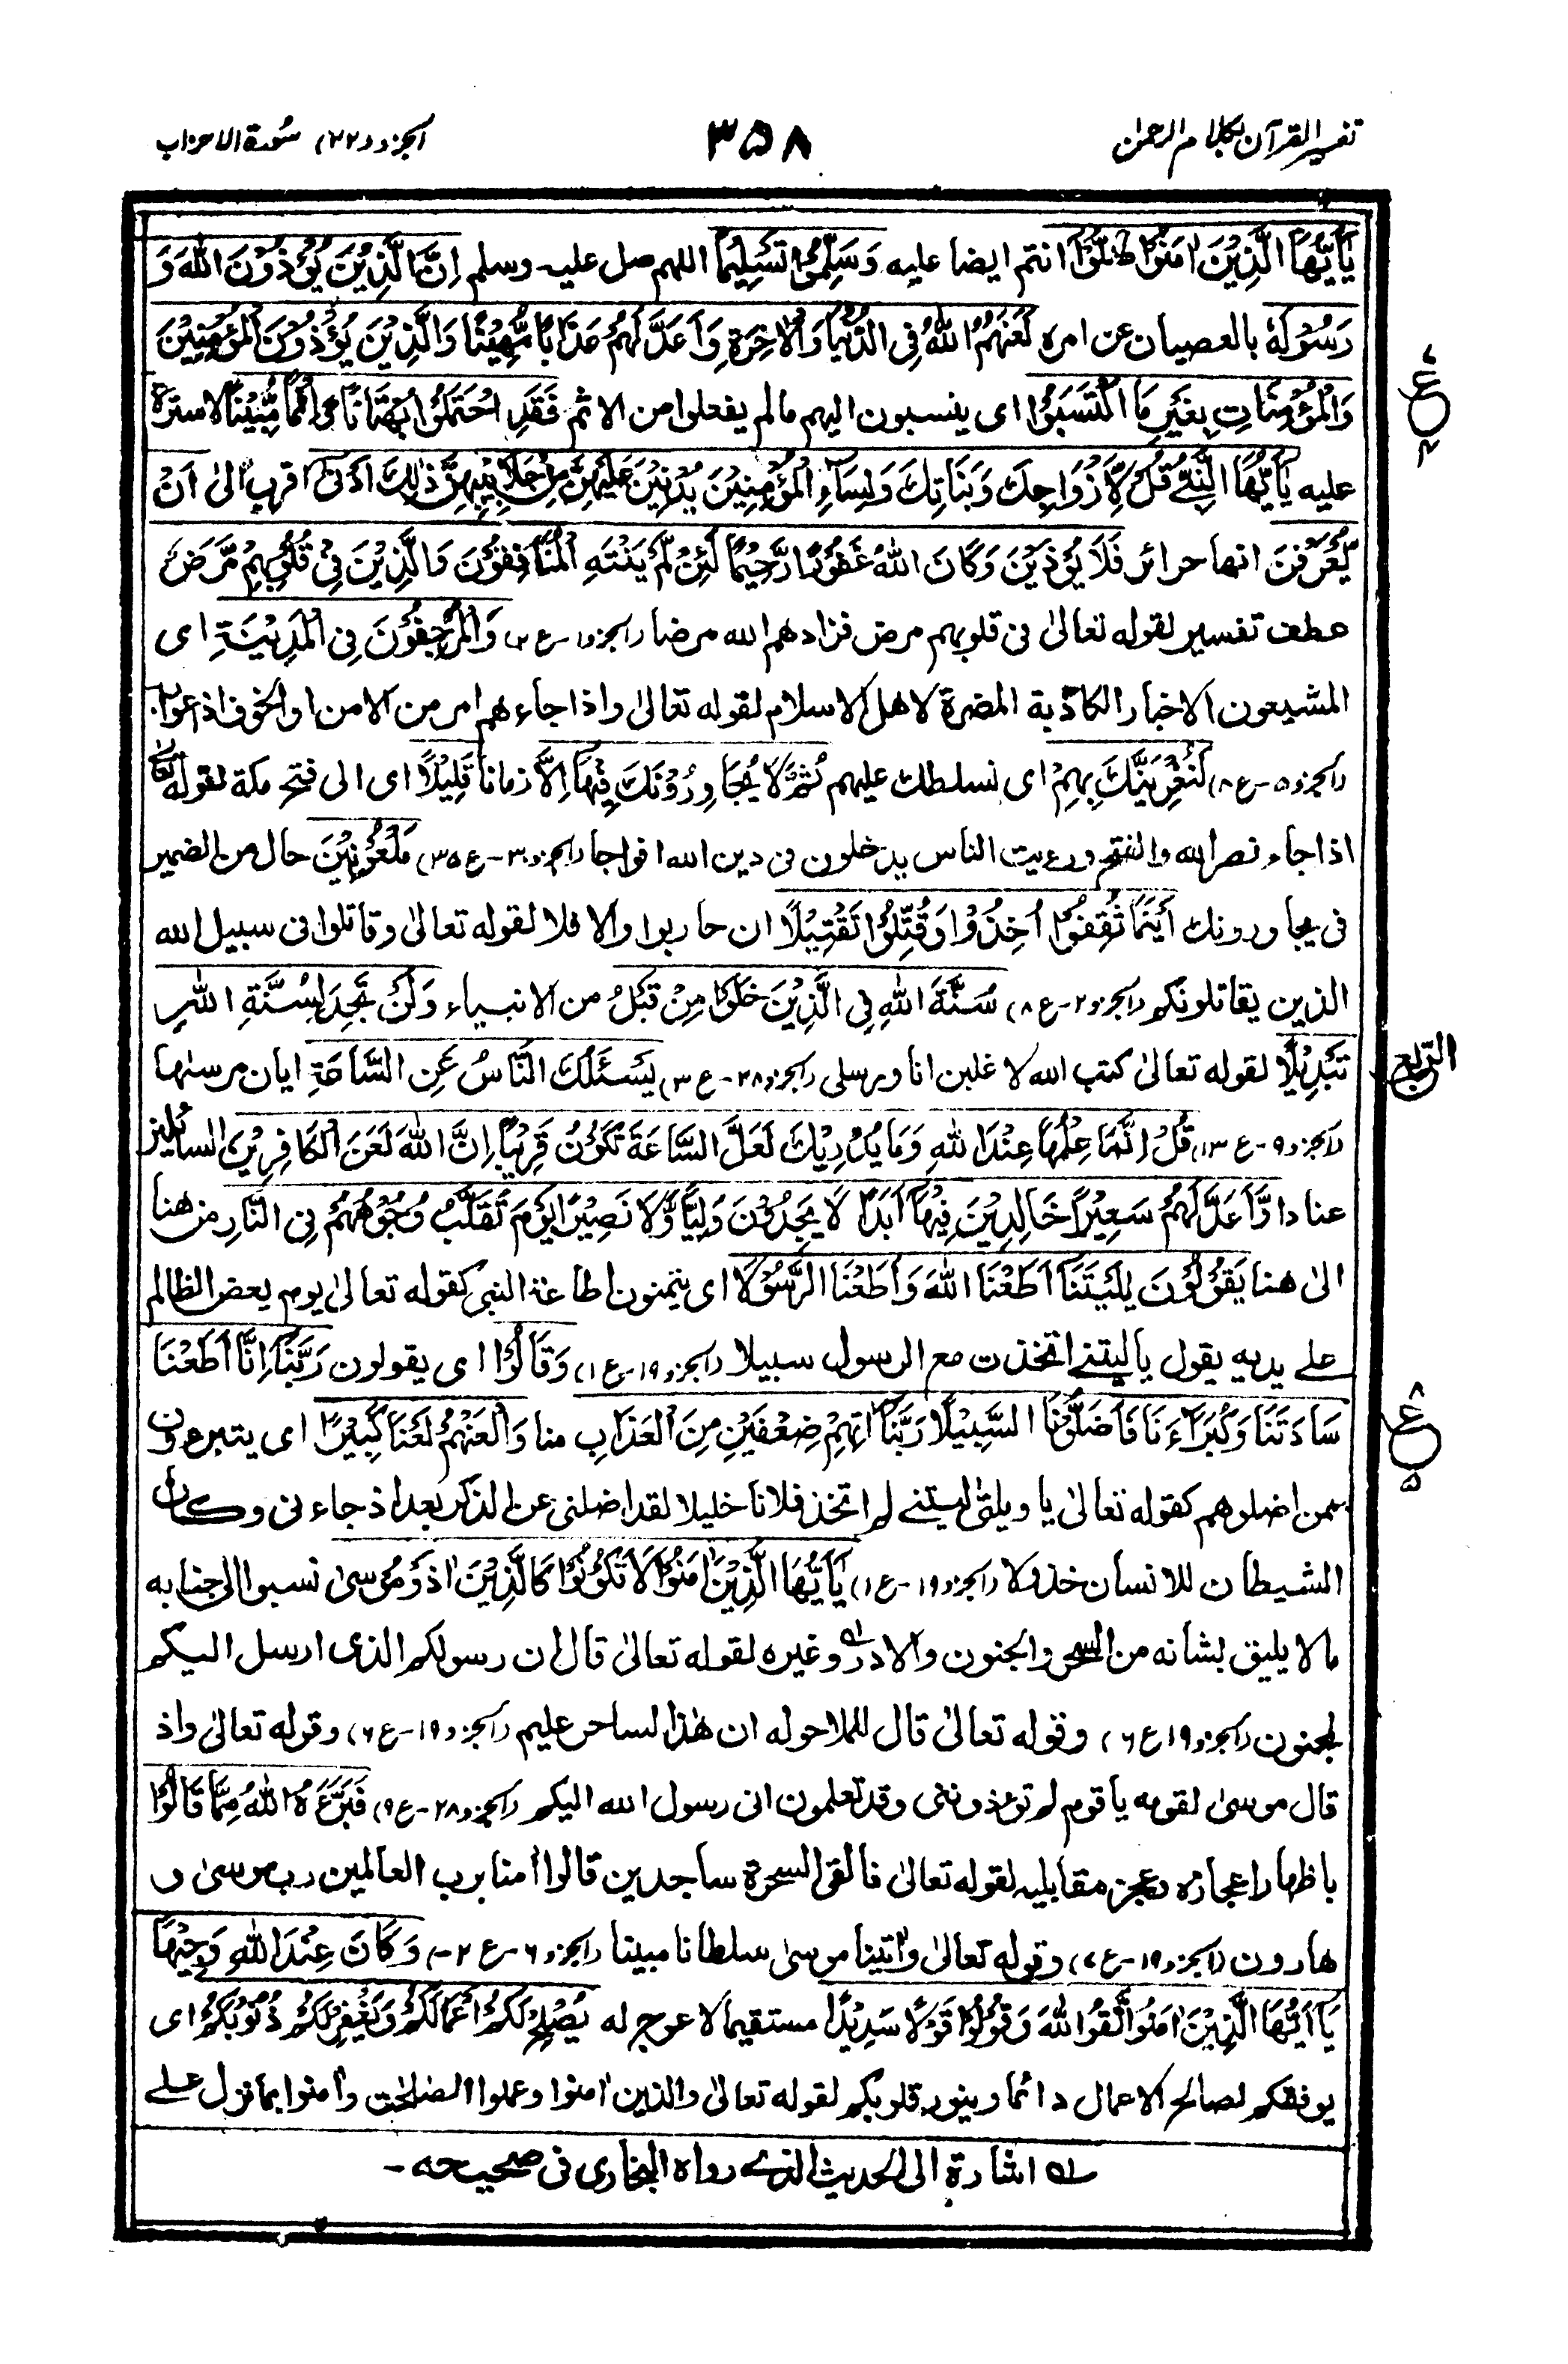 تفسير القرآن بكلام الرحمن
٣٥٨
الجزو (٢٢) سُورة الاحزاب
يٰٓاَيُّهَا الَّذِيْنَ اٰمَنُوْا صَلُّوْا انتم ايضا عليه وَسَلِّمُوْا تَسْلِيْمًا اللهم صل عليه وسلم اِنَّ الَّذِيْنَ يُؤْذُوْنَ اللّٰهَ وَ
رَسُوْلَهٗ بالعصيان عن امره لَعَنَهُمُ اللّٰهُ فِي الدُّنْيَا وَالْاٰخِرَةِ وَاَعَدَّ لَهُمْ عَذَابًا مُّهِيْنًا وَالَّذِيْنَ يُؤْذُوْنَ الْمُؤْمِنِيْنَ
وَالْمُؤْمِنَاتِ بِغَيْرِ مَا اكْتَسَبُوْا اى ينسبون اليهم مالم يفعلوا من الاثم فَقَدِ احْتَمَلُوْا بُهْتَانًا وَّاِثْمًا مُّبِيْنًا لاسترة
عليه يٰٓاَيُّهَا النَّبِيُّ قُلْ لِّاَزْوَاجِكَ وَبَنَاتِكَ وَنِسَآءِ الْمُؤْمِنِيْنَ يُدْنِيْنَ عَلَيْهِنَّ مِنْ جَلَابِيْبِهِنَّ ذٰلِكَ اَدْنٰى اقرب الىٰ اَنْ
يُّعْرَفْنَ انها حرائر فَلَا يُؤْذَيْنَ وَكَانَ اللّٰهُ غَفُوْرًا رَّحِيْمًا لَئِنْ لَّمْ يَنْتَهِ الْمُنَافِقُوْنَ وَالَّذِيْنَ فِيْ قُلُوْبِهِمْ مَّرَضٌ
عطف تفسير لقوله تعالىٰ فى قلوبهم مرض فزادهم الله مرضا (الجزو١-ع٢) وَالْمُرْجِفُوْنَ فِى الْمَدِيْنَةِ اى
المشيعون الاخبار الكاذبة المضرة لاهل الاسلام لقوله تعالىٰ واذا جاءهم امر من الامن او الخوف اذاعوا به
(الجزو٥-ع٨) لَنُغْرِيَنَّكَ بِهِمْ اى نسلطك عليهم ثُمَّ لَا يُجَاوِرُوْنَكَ فِيْهَا اِلَّا زمانا قَلِيْلًا اى الى فتح مكة لقوله تعالىٰ
اذا جاء نصر الله والفتح ورءيت الناس يدخلون فى دين الله افواجا (الجزو٣٠-ع٣٥) مَلْعُوْنِيْنَ حال من الضمير
فى يجاورونك اَيْنَمَا ثُقِفُوْٓا اُخِذُوْا وَقُتِّلُوْا تَقْتِيْلًا ان حاربوا والا فلا لقوله تعالىٰ وقاتلوا فى سبيل الله
الذين يقاتلونكم (الجزو٢-ع٨) سُنَّةَ اللّٰهِ فِى الَّذِيْنَ خَلَوْا مِنْ قَبْلُ من الانبياء وَلَنْ تَجِدَ لِسُنَّةِ اللّٰهِ
تَبْدِيْلًا لقوله تعالىٰ كتب الله لاغلبن انا ورسلى (الجزو٢٨-ع٣) يَسْئَلُكَ النَّاسُ عَنِ السَّاعَةِ ايان مرسٰها
(الجزو٩-ع١٣) قُلْ اِنَّمَا عِلْمُهَا عِنْدَ اللّٰهِ وَمَا يُدْرِيْكَ لَعَلَّ السَّاعَةَ تَكُوْنُ قَرِيْبًا اِنَّ اللّٰهَ لَعَنَ الْكَافِرِيْنَ السائلين
عنادا وَّاَعَدَّ لَهُمْ سَعِيْرًا خَالِدِيْنَ فِيْهَآ اَبَدًا لَا يَجِدُوْنَ وَلِيًّا وَّلَا نَصِيْرًا يَوْمَ تُقَلَّبُ وُجُوْهُهُمْ فِى النَّارِ من هنا
الىٰ هنا يَقُوْلُوْنَ يٰلَيْتَنَآ اَطَعْنَا اللّٰهَ وَاَطَعْنَا الرَّسُوْلَا اى يتمنون اطاعة النبى كقوله تعالىٰ يوم يعض الظالم
علے يديه يقول ياليتنے اتخذت مع الرسول سبيلا (الجزو١٩-ع١) وَقَالُوْا اى يقولون رَبَّنَآ اِنَّآ اَطَعْنَا
سَادَتَنَا وَكُبَرَآءَنَا فَاَضَلُّوْنَا السَّبِيْلَا رَبَّنَآ اٰتِهِمْ ضِعْفَيْنِ مِنَ الْعَذَابِ منا وَالْعَنْهُمْ لَعْنًا كَبِيْرًا اى يتبرءون
ممن اضلوهم كقوله تعالىٰ يا ويلتىٰ ليتنے لم اتخذ فلانا خليلا لقد اضلنى عن الذكر بعد اذ جاءنى وكان
الشيطان للانسان خذولا (الجزو١٩-ع١) يٰٓاَيُّهَا الَّذِيْنَ اٰمَنُوْا لَا تَكُوْنُوْا كَالَّذِيْنَ اٰذَوْا مُوْسٰى نسبوا الى جنابه
ما لا يليق بشانه من السحر والجنون والادر له وغيره لقوله تعالىٰ قال ان رسولكم الذى ارسل اليكم
لمجنون (الجزو١٩ع٦) وقوله تعالىٰ قال للملا حوله ان هٰذا لساحر عليم (الجزو١٩-ع٦) وقوله تعالىٰ واذ
قال موسىٰ لقومه يا قوم لم تؤذوننى وقد تعلمون انى رسول الله اليكم (الجزو٢٨-ع٩) فَبَرَّءَهُ اللّٰهُ مِمَّا قَالُوْا
باظهار اعجازه وعجز مقابليه لقوله تعالىٰ فالقى السحرة ساجدين قالوا اٰمنا برب العالمين رب موسىٰ و
هارون (الجزو١٩-ع٧) وقوله تعالىٰ واٰتينا موسىٰ سلطانا مبينا (الجزو٦-ع٢) وَكَانَ عِنْدَ اللّٰهِ وَجِيْهًا
يَآ اَيُّهَا الَّذِيْنَ اٰمَنُوا اتَّقُوا اللّٰهَ وَقُوْلُوْا قَوْلًا سَدِيْدًا مستقيما لا عوج له يُصْلِحْ لَكُمْ اَعْمَالَكُمْ وَيَغْفِرْ لَكُمْ ذُنُوْبَكُمْ اى
يوفقكم لصالح الاعمال دائما وينور قلوبكم لقوله تعالىٰ والذين اٰمنوا وعملوا الصٰلحٰت واٰمنوا بما نزل علے
له اشارة الى الحديث الذے رواه البخارى فى صحيحه -
ع
٤
الربع
ع
٥